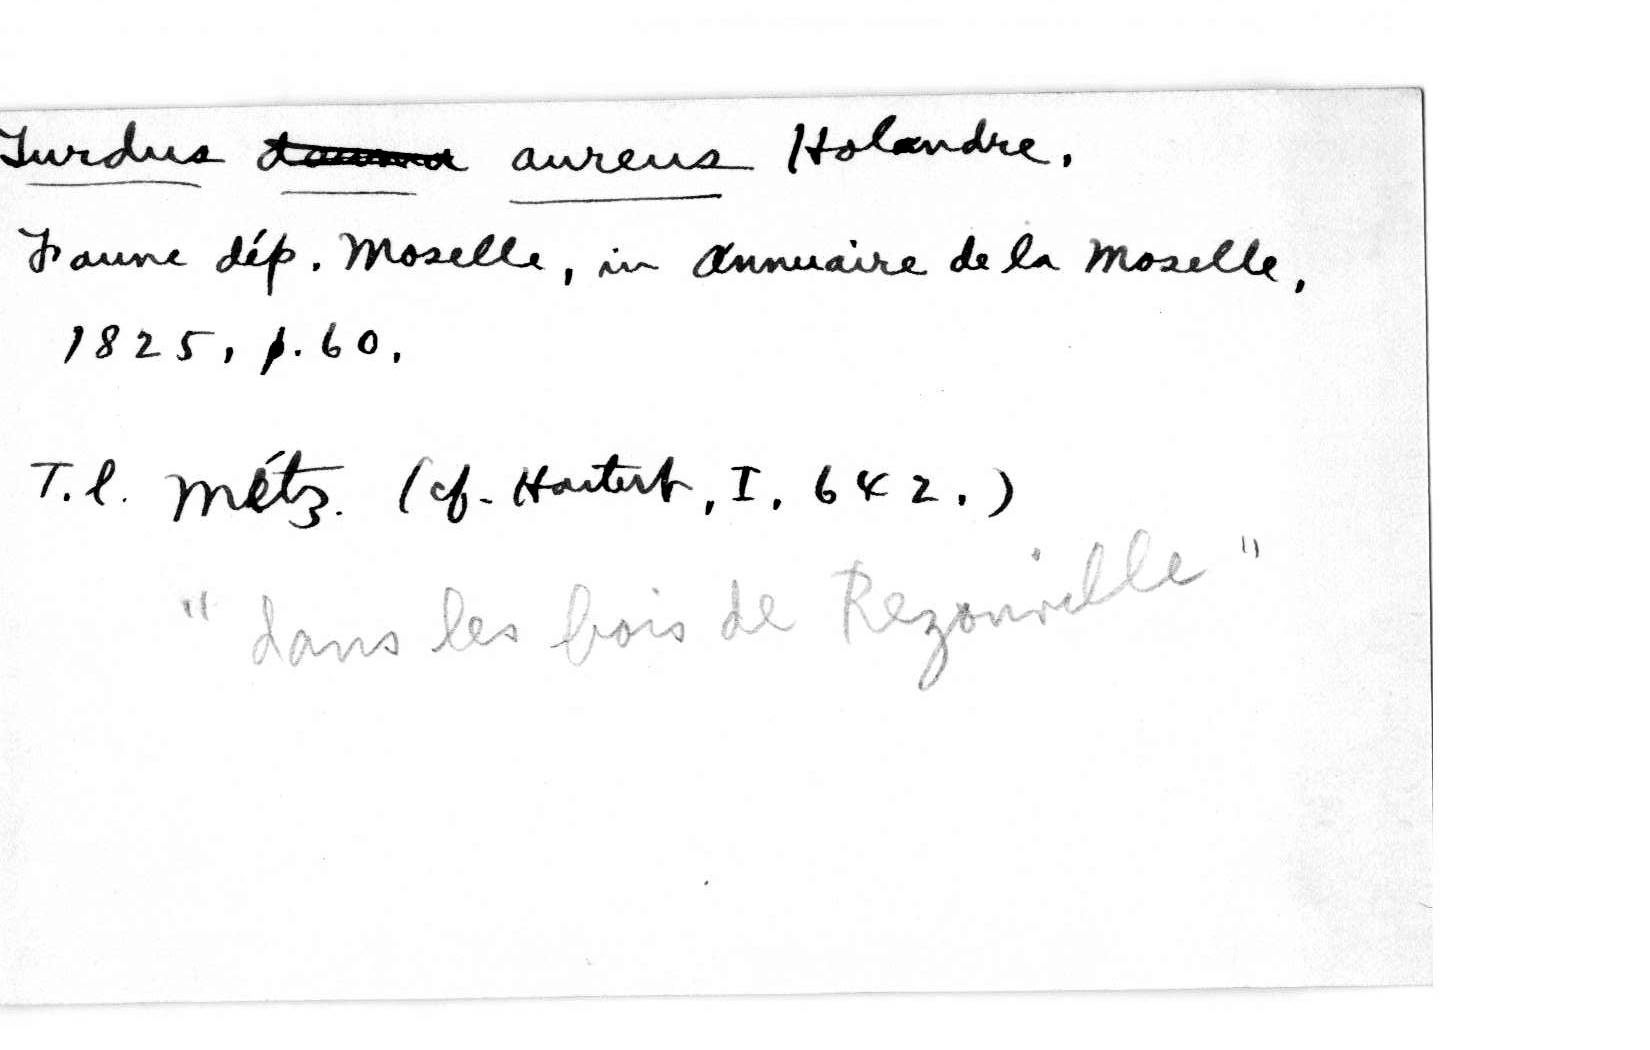 Turdus dauma aureus Holandre.
Faune dép. Moselle, in Annuaire de la Moselle,
1825, p. 60.
T.l. Métz. (cf. Hartert, I, 642.)
"dans les bois de Rezonville"